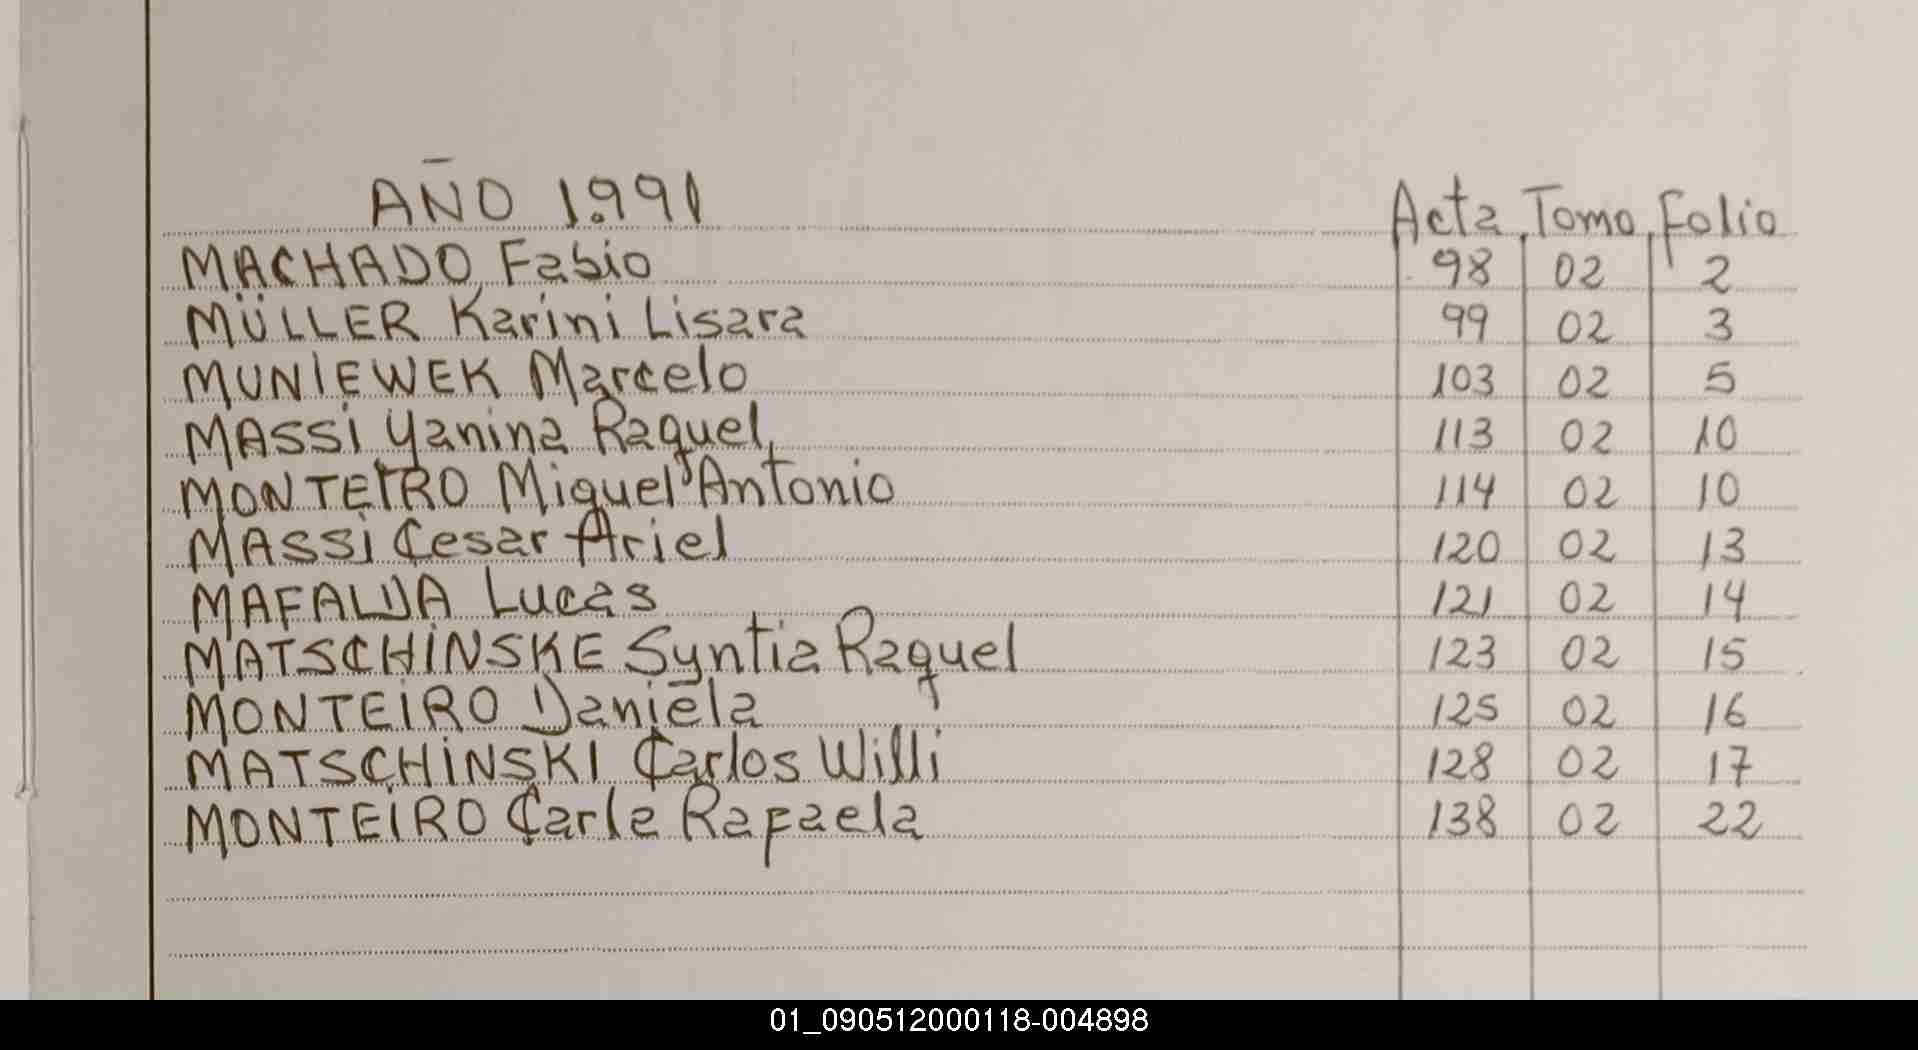 AÑO 1.991 Acta Tomo Folio
MACHADO Fabio 98 02 2
MÜLLER Karini Lisara 99 02 3
MUNIEWEK Marcelo 103 02 5
MASSI Yanina Raquel 113 02 10
MONTEIRO Miguel Antonio 114 02 10
MASSI Cesar Ariel 120 02 13
MAFALDA Lucas 121 02 14
MATSCHINSKE Syntia Raquel 123 02 15
MONTEIRO Daniela 125 02 16
MATSCHINSKI Carlos Willi 128 02 17
MONTEIRO Carla Rafaela 138 02 22
01_090512000118-004898